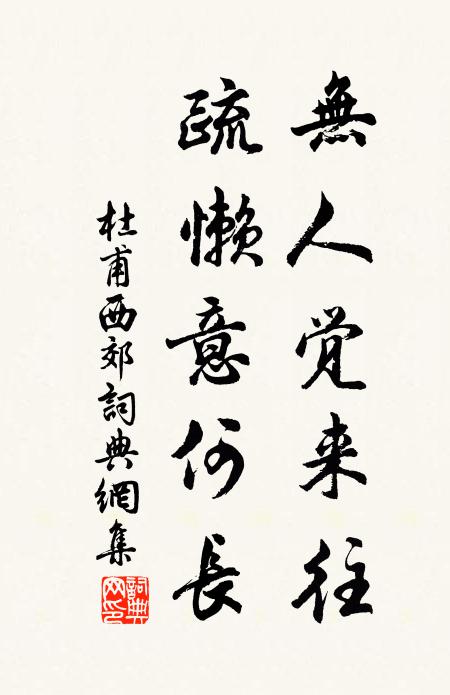 無人觉来往
疏懒意何長
杜甫西郊詞典網集
詞典网印